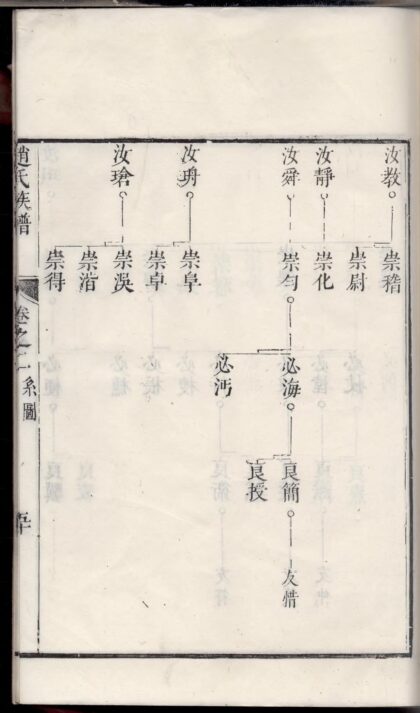 汝教
汝靜
汝舜
汝玬
汝瑲
崇稽
崇尉
崇化
崇勻
崇阜
崇卓
崇洖
崇湝
崇得
必海
必沔
良簡
良授
友惜
趙氏族譜
卷之一系圖